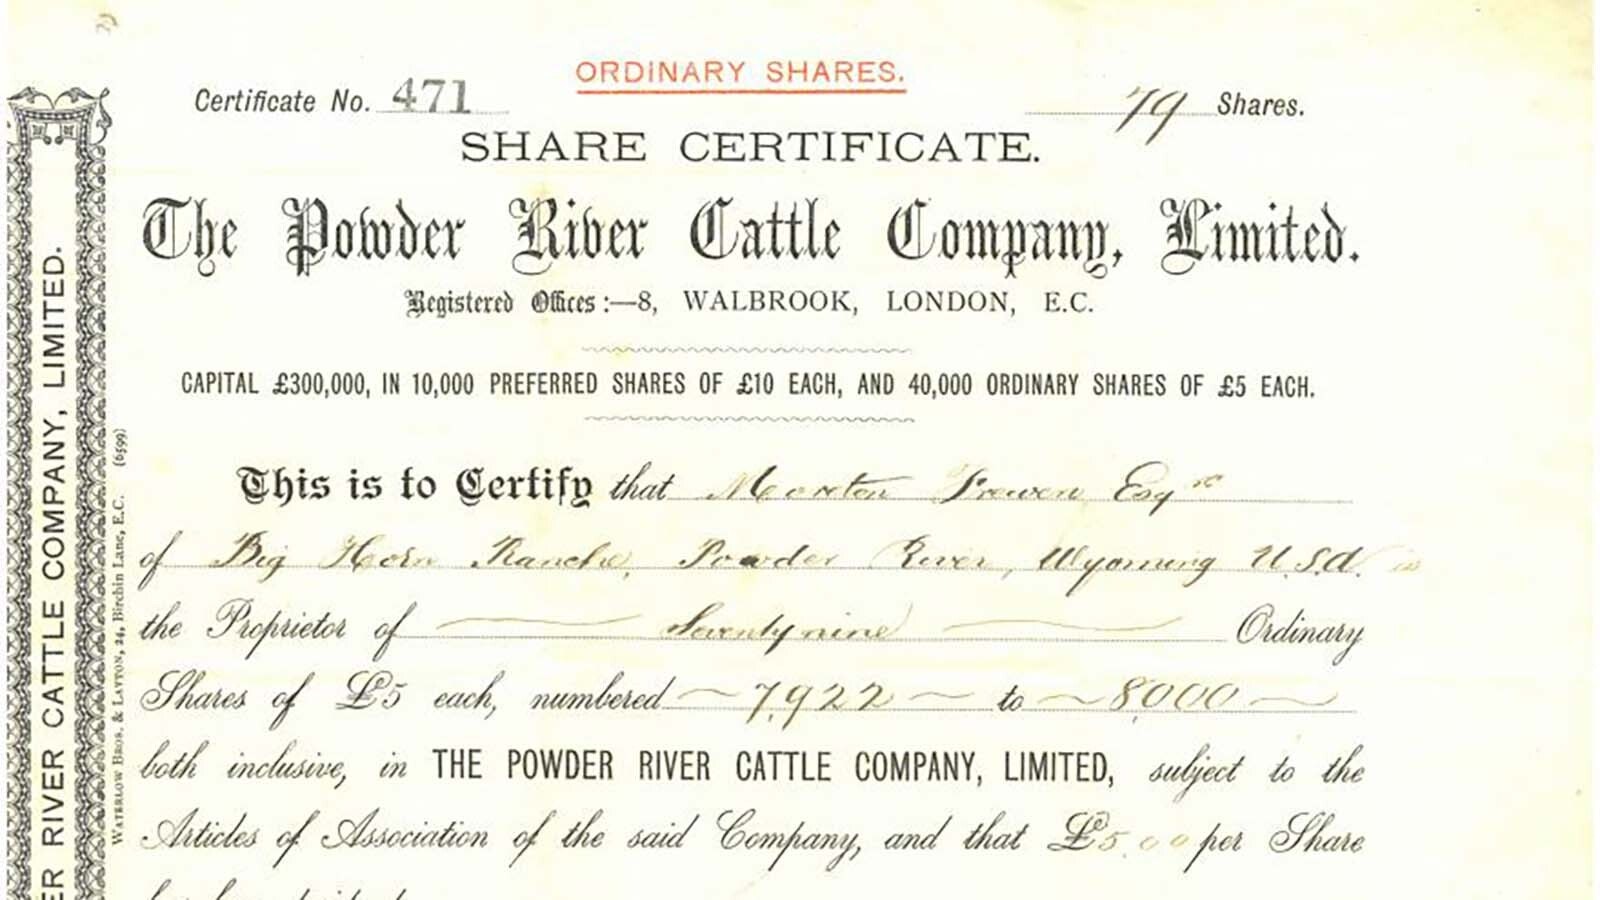 ORDINARY SHARES.
Certificate No. 471
79 Shares.
SHARE CERTIFICATE.
The Powder River Cattle Company, Limited.
Registered Offices:—8, WALBROOK, LONDON, E.C.
CAPITAL £300,000, IN 10,000 PREFERRED SHARES OF £10 EACH, AND 40,000 ORDINARY SHARES OF £5 EACH.
This is to Certify that Moreton Frewen Esqre
of Big Horn Ranche, Powder River, Wyoming U.S.A. is
the Proprietor of Seventy nine Ordinary
Shares of £5 each, numbered 7,922 to 8,000
both inclusive, in THE POWDER RIVER CATTLE COMPANY, LIMITED, subject to the
Articles of Association of the said Company, and that £5.00 per Share
ER RIVER CATTLE COMPANY, LIMITED.
WATERLOW BROS. & LAYTON, 24, Birchin Lane, E.C. (6599)